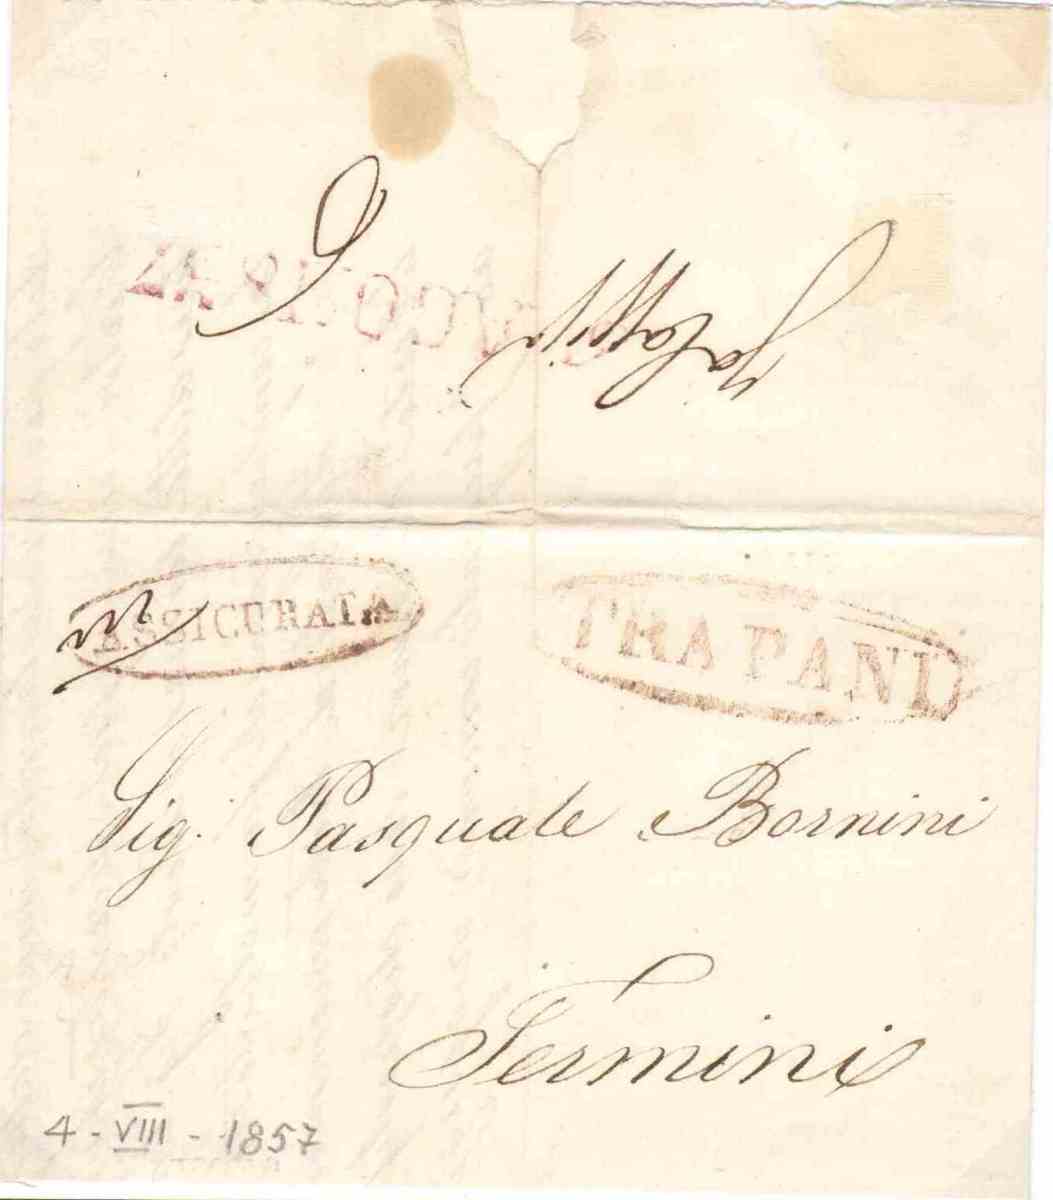 ASSICURATA
TRAPANI
Sig. Pasquale Bornini
Termini
4 - VIII - 1857